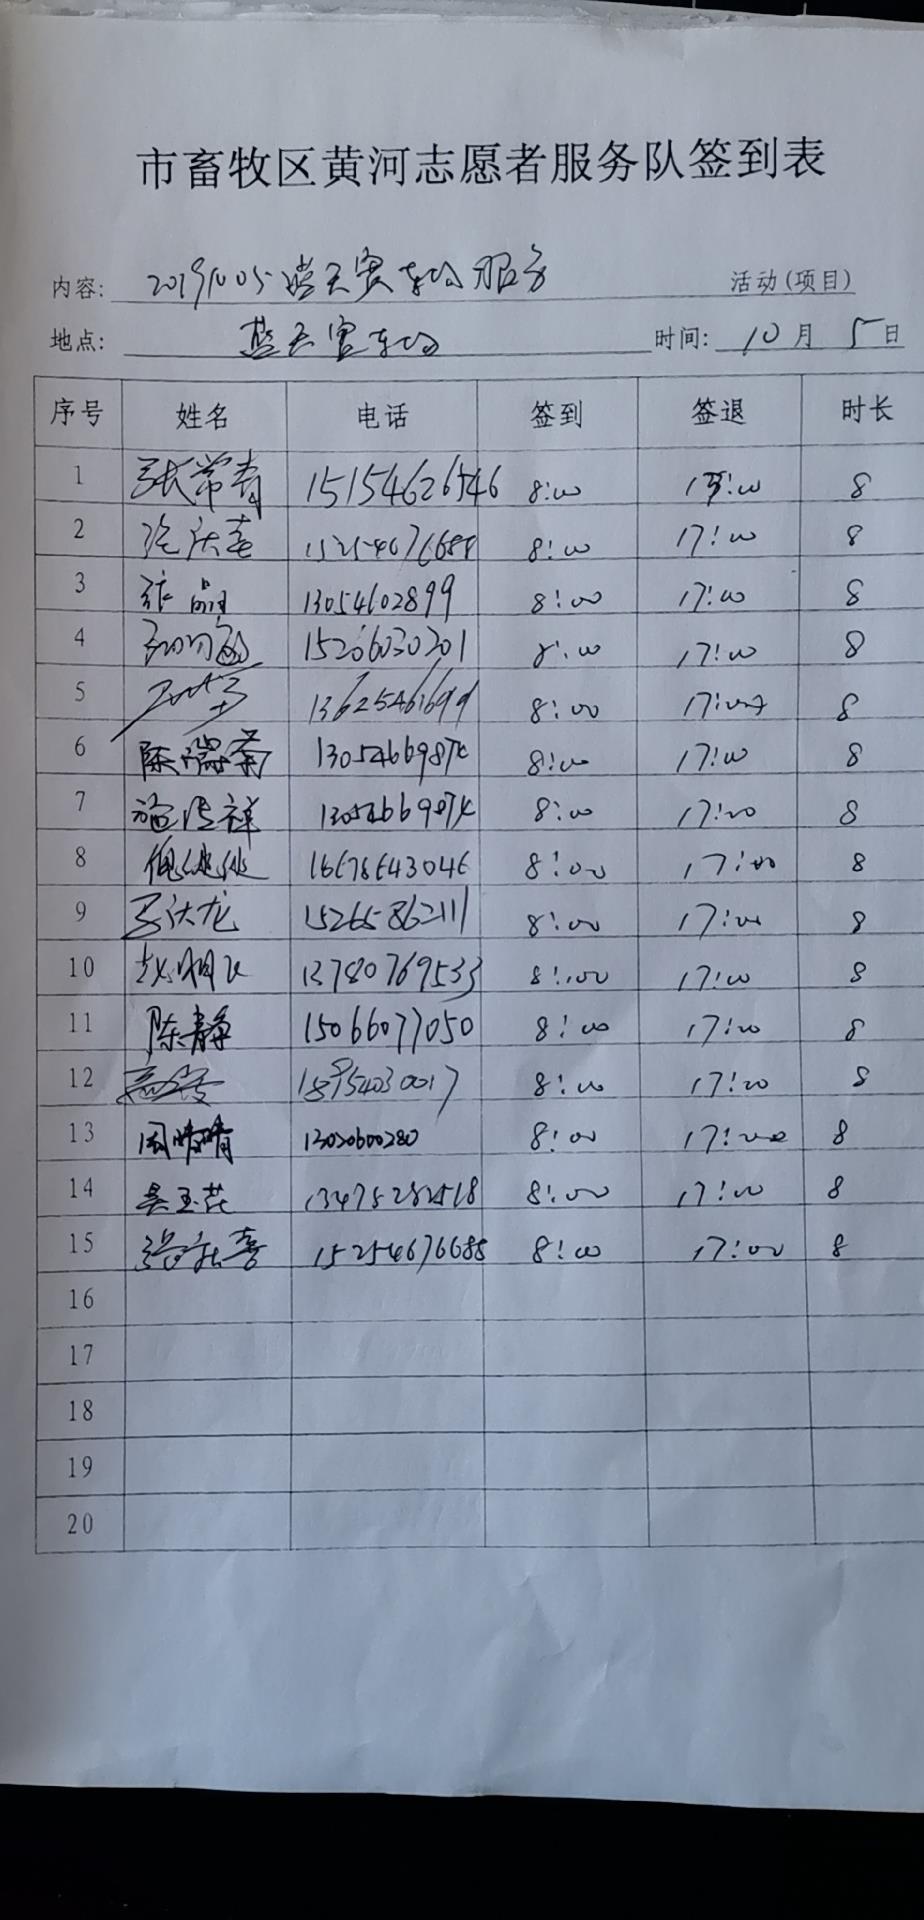 市畜牧区黄河志愿者服务队签到表
内容: 20191005 蓝天赛车场服务 活动(项目)
地点: 蓝天赛车场 时间: 10月5日
序号 姓名 电话 签到 签退 时长
1 张常青 15154626546 8:00 17:00 8
2 15254676688 8:00 17:00 8
3 张晶 13054602899 8:00 17:00 8
4 15206030201 8:00 17:00 8
5 13625461699 8:00 17:00 8
6 陈瑞菊 8:00 17:00 8
7 8:00 17:00 8
8 8:00 17:00 8
9 15265862111 8:00 17:00 8
10 13780769533 8:00 17:00 8
11 陈静 15066077050 8:00 17:00 8
12 15954030017 8:00 17:00 8
13 周晴晴 13020600280 8:00 17:00 8
14 吴玉花 8:00 17:00 8
15 15254676688 8:00 17:00 8
16
17
18
19
20